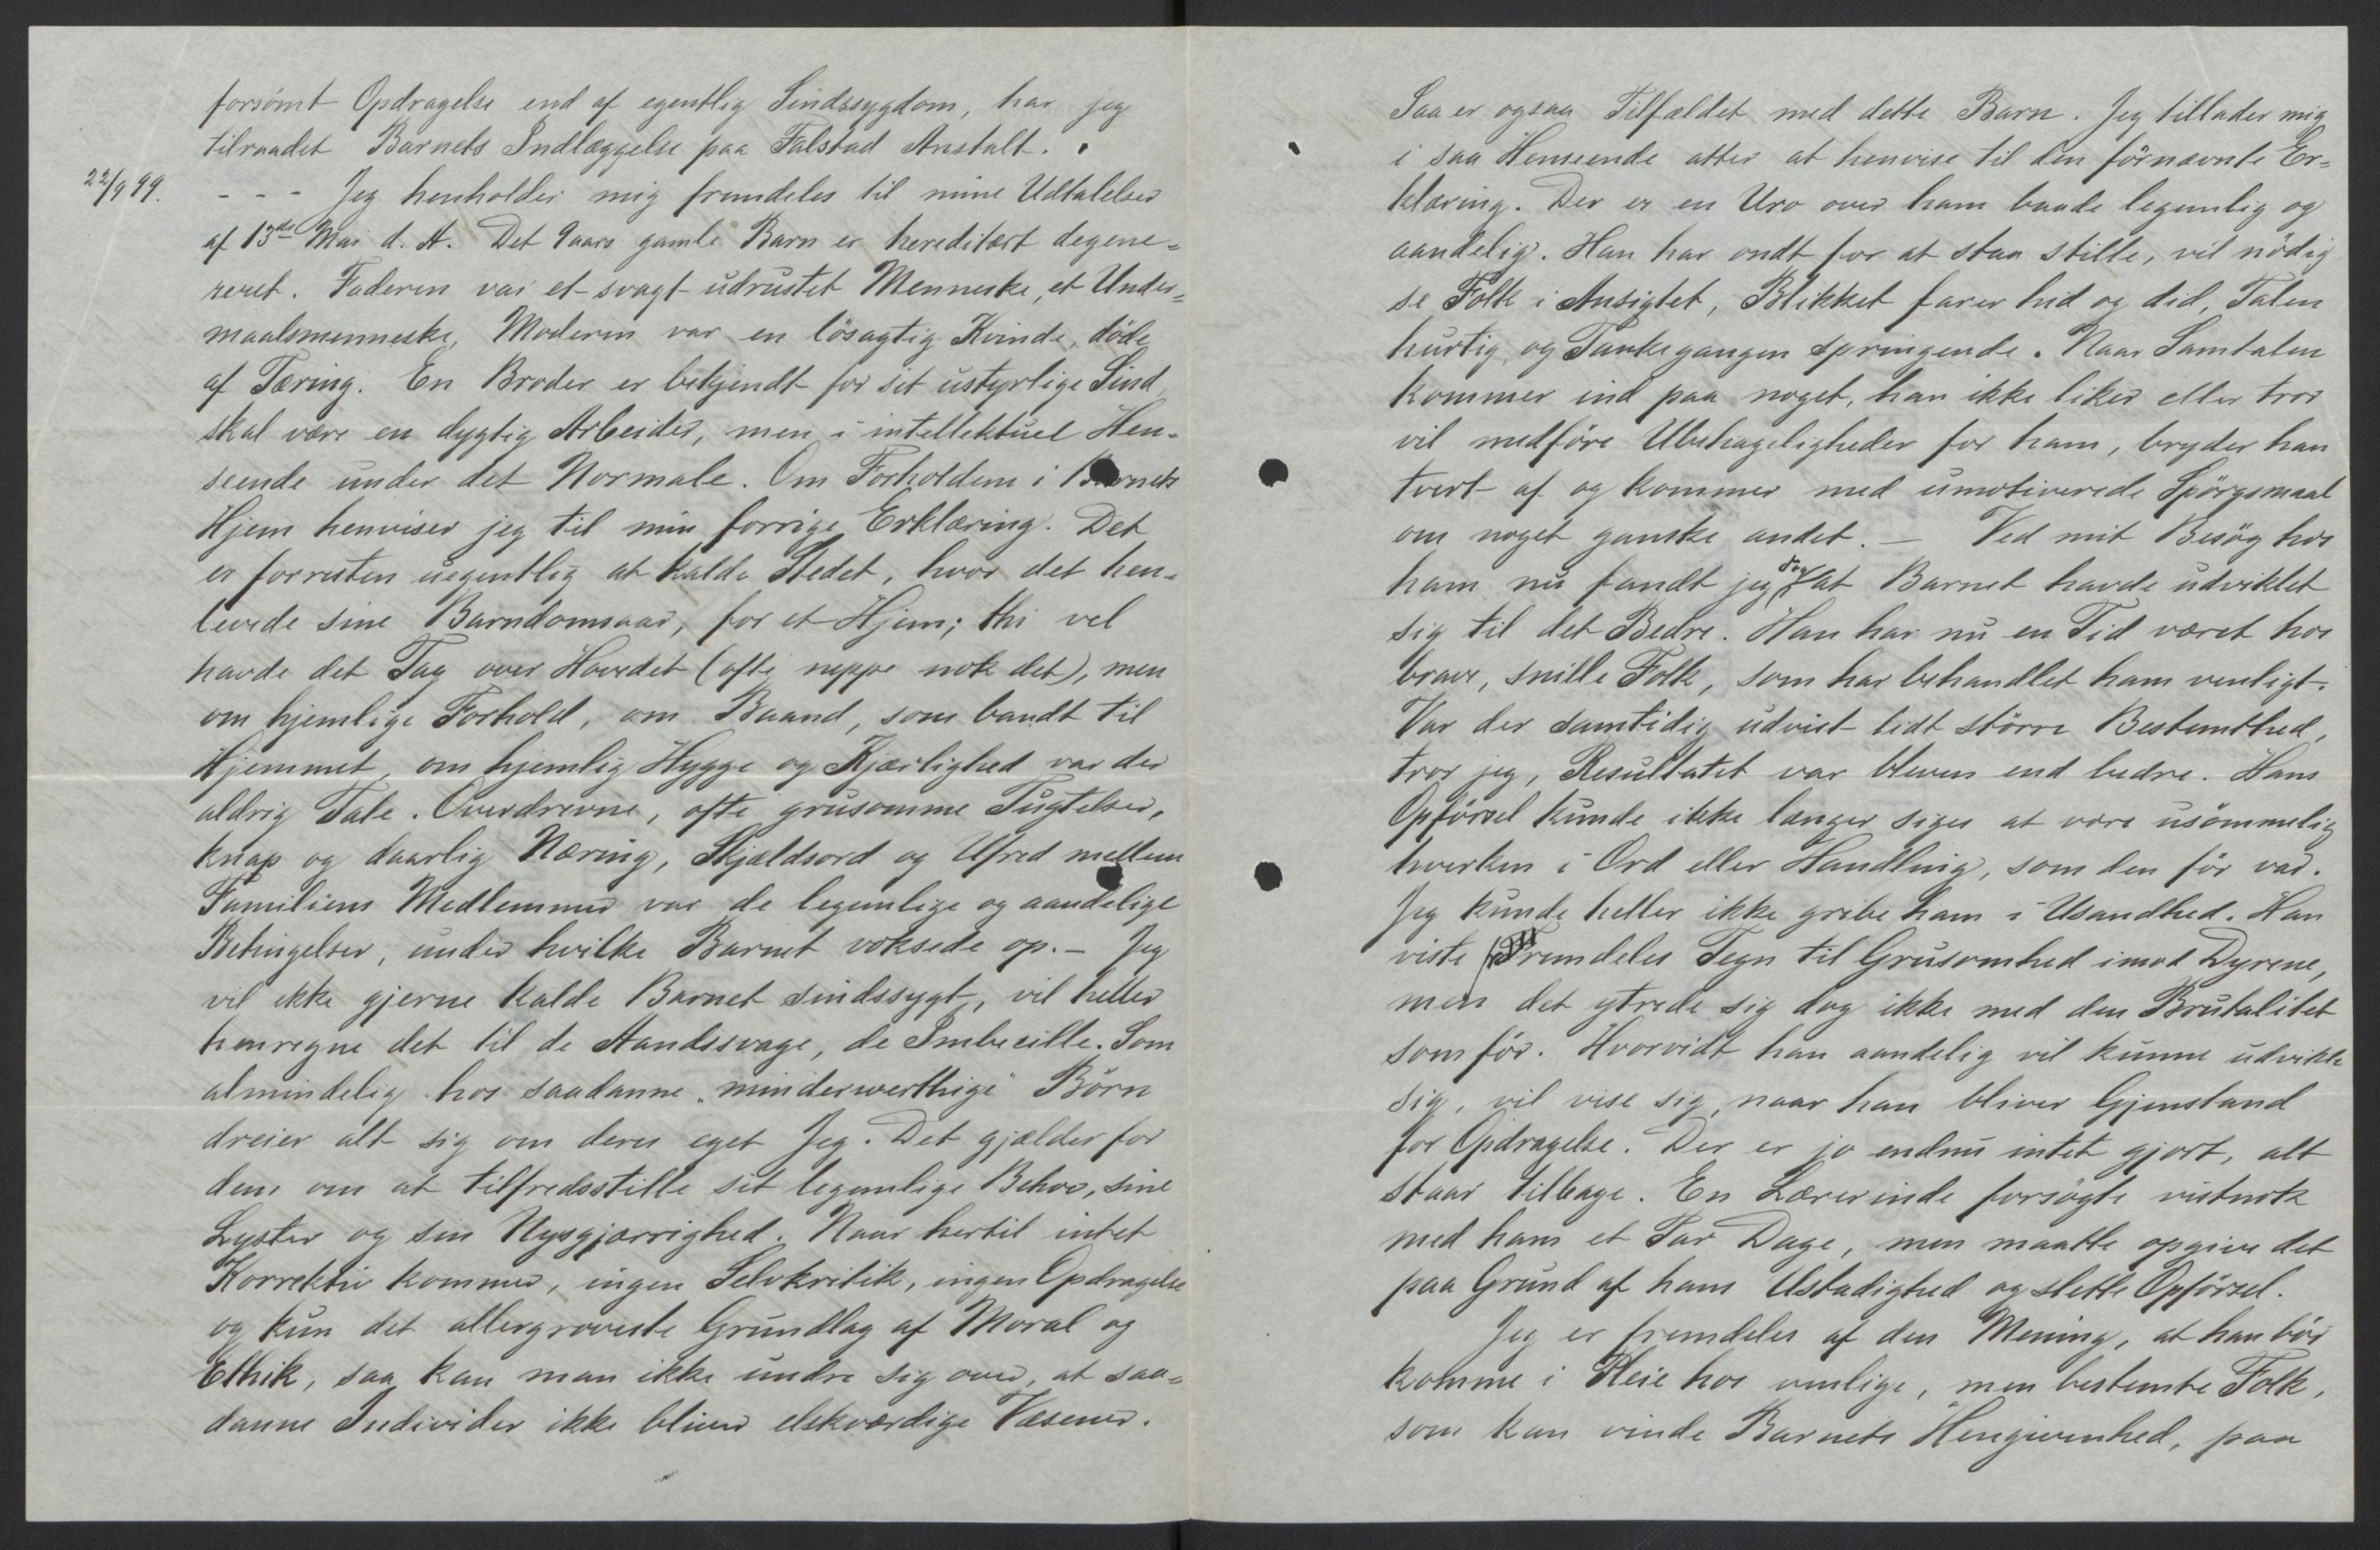 forsömt Opdragelse end af egentlig Sindssygdom, har jeg
tilraadet Barnets Indlæggelse paa Falstad Anstalt.
22/9 99. - - - Jeg henholder mig fremdeles til mine Udtalelser
af 13de Mai d. A. Det 9 aars gamle Barn er hereditært degene=
reret. Faderen var et svagt udrustet Menneske, et Under=
maalsmenneske, Moderen var en lösagtig Kvinde, döde
af Tæring. En Broder er bekjendt for sit ustyrlige Sind,
skal være en dygtig Arbeider, men i intellektuel Hen-
seende under det Normale. Om Forholdene i Barnets
Hjem henviser jeg til min forrige Erklæring. Det
er forresten uegentlig at kalde Stedet, hvor det hen-
levede sine Barndomsaar, for et Hjem; thi vel
havde det Tag over Hovedet (ofte neppe nok det), men
om hjemlige Forhold, om Baand, som bandt til
Hjemmet, om hjemlig Hygge og Kjærlighed var der
aldrig Tale. Overdrevne, ofte grusomme Tugtelser,
knap og daarlig Næring, Skjældsord og Ufred mellem
Familiens Medlemmer var de legemlige og aandelige
Betingelser, under hvilke Barnet voksede op. - Jeg
vil ikke gjerne kalde Barnet sindssygt, vil heller
henregne det til de Aandssvage, de Imbecille. Som
almindelig hos saadanne "minderwerthige" Börn
dreier alt sig om deres eget Jeg. Det gjælder for
dem om at tilfredsstille sit legemlige Behov, sine
Lyster og sin Nysgjærrighed. Naar hertil intet
Korrektiv kommer, ingen Selvkritik, ingen Opdragelse
og kun det allergroveste Grundlag af Moral og
Ethik, saa kan man ikke undre sig over, at saa=
danne Individer ikke bliver elskværdige Væsener.
Saa er ogsaa Tilfældet med dette Barn. Jeg tillader mig
i saa Henseende atter at henvise til den förnævnte Er=
klæring. Der er en Uro over ham baade legemlig og
aandelig. Han har ondt for at staa stille, vil nödig
se Folk i Ansigtet, Blikket farer hid og did, Talen
hurtig og Tankegangen springende. Naar Samtalen
kommer ind paa noget, han ikke liker eller tror
vil medföre Ubehageligheder for ham, bryder han
tvert af og kommer med umotiverede Spörgsmaal
om noget ganske andet. - Ved mit Besög hos
ham nu fandt jeg dog at Barnet havde udviklet
sig til det Bedre. Han har nu en Tid været hos
brave, snille Folk, som har behandlet ham venligt.
Var der samtidig udvist lidt större Bestemthed,
tror jeg, Resultatet var bleven end bedre. Hans
Opförsel kunde ikke længer siges at være usömmelig
hverken i Ord eller Handling, som den för var.
Jeg kunde heller ikke gribe ham i Usandhed. Han
viste fremdeles Tegn til Grusomhed imod Dyrene,
men det ytrede sig dog ikke med den Brutalitet
som för. Hvorvidt han aandelig vil kunne udvikle
sig, vil vise sig, naar han bliver Gjenstand
for Opdragelse. Der er jo endnu intet gjort, alt
staar tilbage. En Lærerinde forsögte vistnok
med ham et Par Dage, men maatte opgive det
paa Grund af hans Ustadighed og slette Opförsel.
Jeg er fremdeles af den Mening, at han bör
komme i Pleie hos venlige, men bestemte Folk,
som kan vinde Barnets Hengivenhed, paa